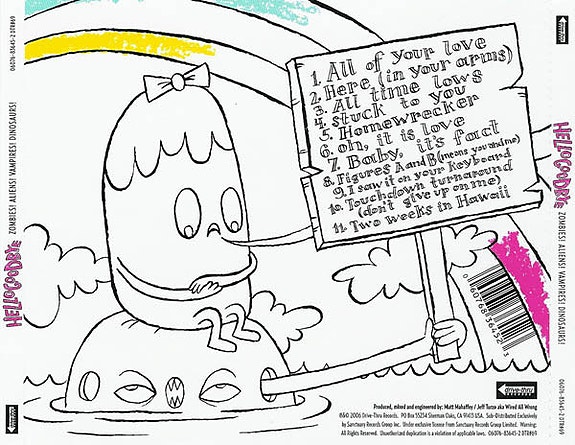 06076-83645-2 DTR#69
ZOMBIES! ALIENS! VAMPIRES! DINOSAURS!
HELLOGOODBYE
1. All of your love
2. Here (in your arms)
3. All time lows
4. stuck to you
5. Homewrecker
6. oh, it is love
7. Baby, it's fact
8. Figures A and B (means you and me)
9. I saw it on your keyboard
10. Touchdown turnaround
(don't give up on me)
11. Two weeks in Hawaii
HELLOGOODBYE
ZOMBIES! ALIENS! VAMPIRES! DINOSAURS!
06076-83645-2 DTR#69
0 60768 36452 3
drive-thru
Produced, mixed and engineered by: Matt Mahaffey / Jeff Turzo aka Wired All Wrong
®&© 2006 Drive-Thru Records. PO Box 55234 Sherman Oaks, CA 91413 USA. Sub-Distributed Exclusively
by Sanctuary Records Group Inc. Under exclusive license from Sanctuary Records Group Limited. Warning:
All Rights Reserved. Unauthorized duplication is a violation of applicable laws. 06076-83645-2 DTR#69